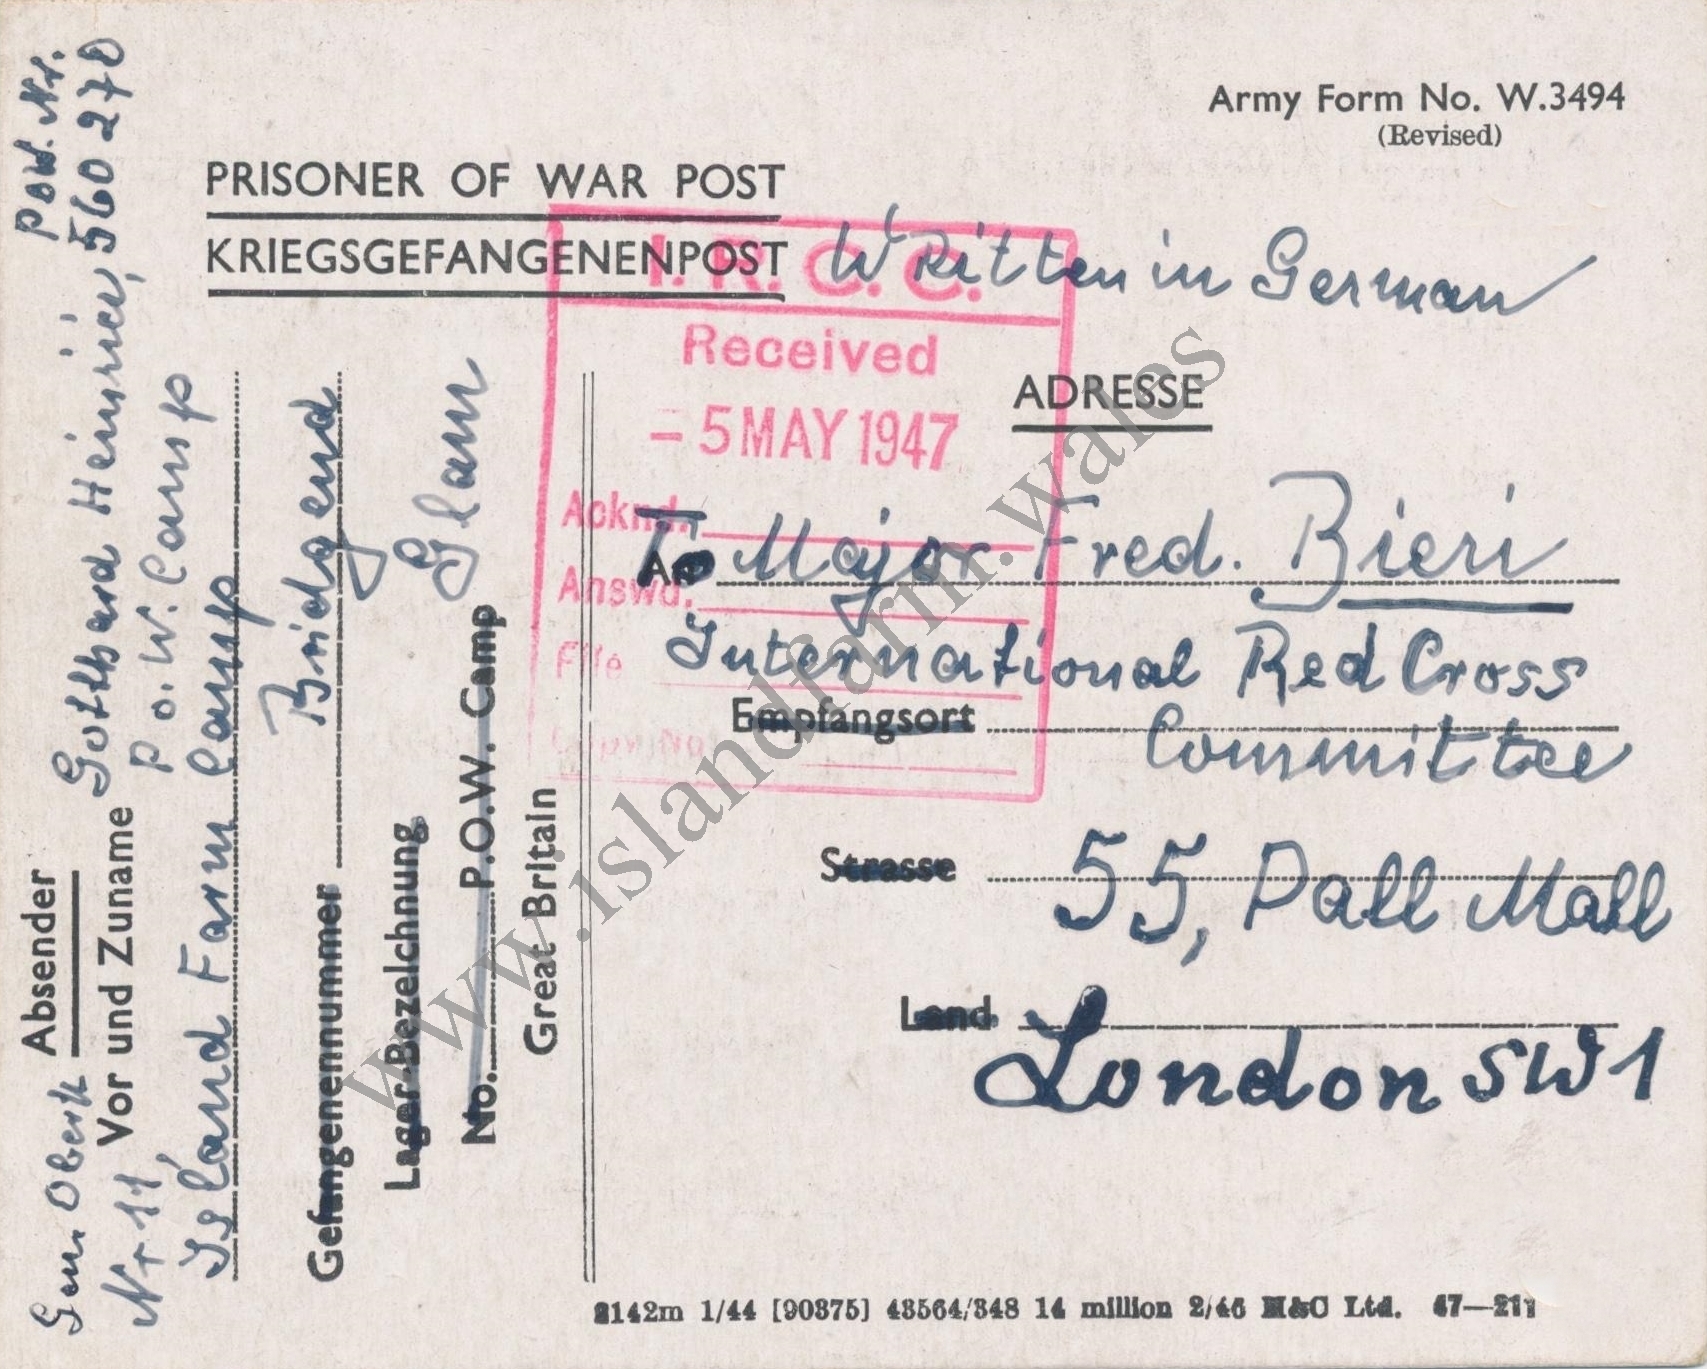 Army Form No. W.3494
(Revised)
PRISONER OF WAR POST
KRIEGSGEFANGENENPOST
Written in German
I. R. C. C.
Received
- 5 MAY 1947
Acknd.
Answd.
File
Copy No.
ADRESSE
An
To Major Fred. Bieri
International Red Cross
Empfangsort
Committee
Strasse
55, Pall Mall
Land
London SW1
Absender
Gen. Oberst Gotthard Heinrici, POW. Nr. 560 278
Vor und Zuname
Nr 11, P.o.W. Camp
Island Farm Camp
Gefangenennummer
Bridgend
Lager-Bezeichnung
Glam
No. P.O.W. Camp
Great Britain
2142m 1/44 [90375] 43564/348 14 million 2/46 M&C Ltd. 47—211
www.islandfarm.wales